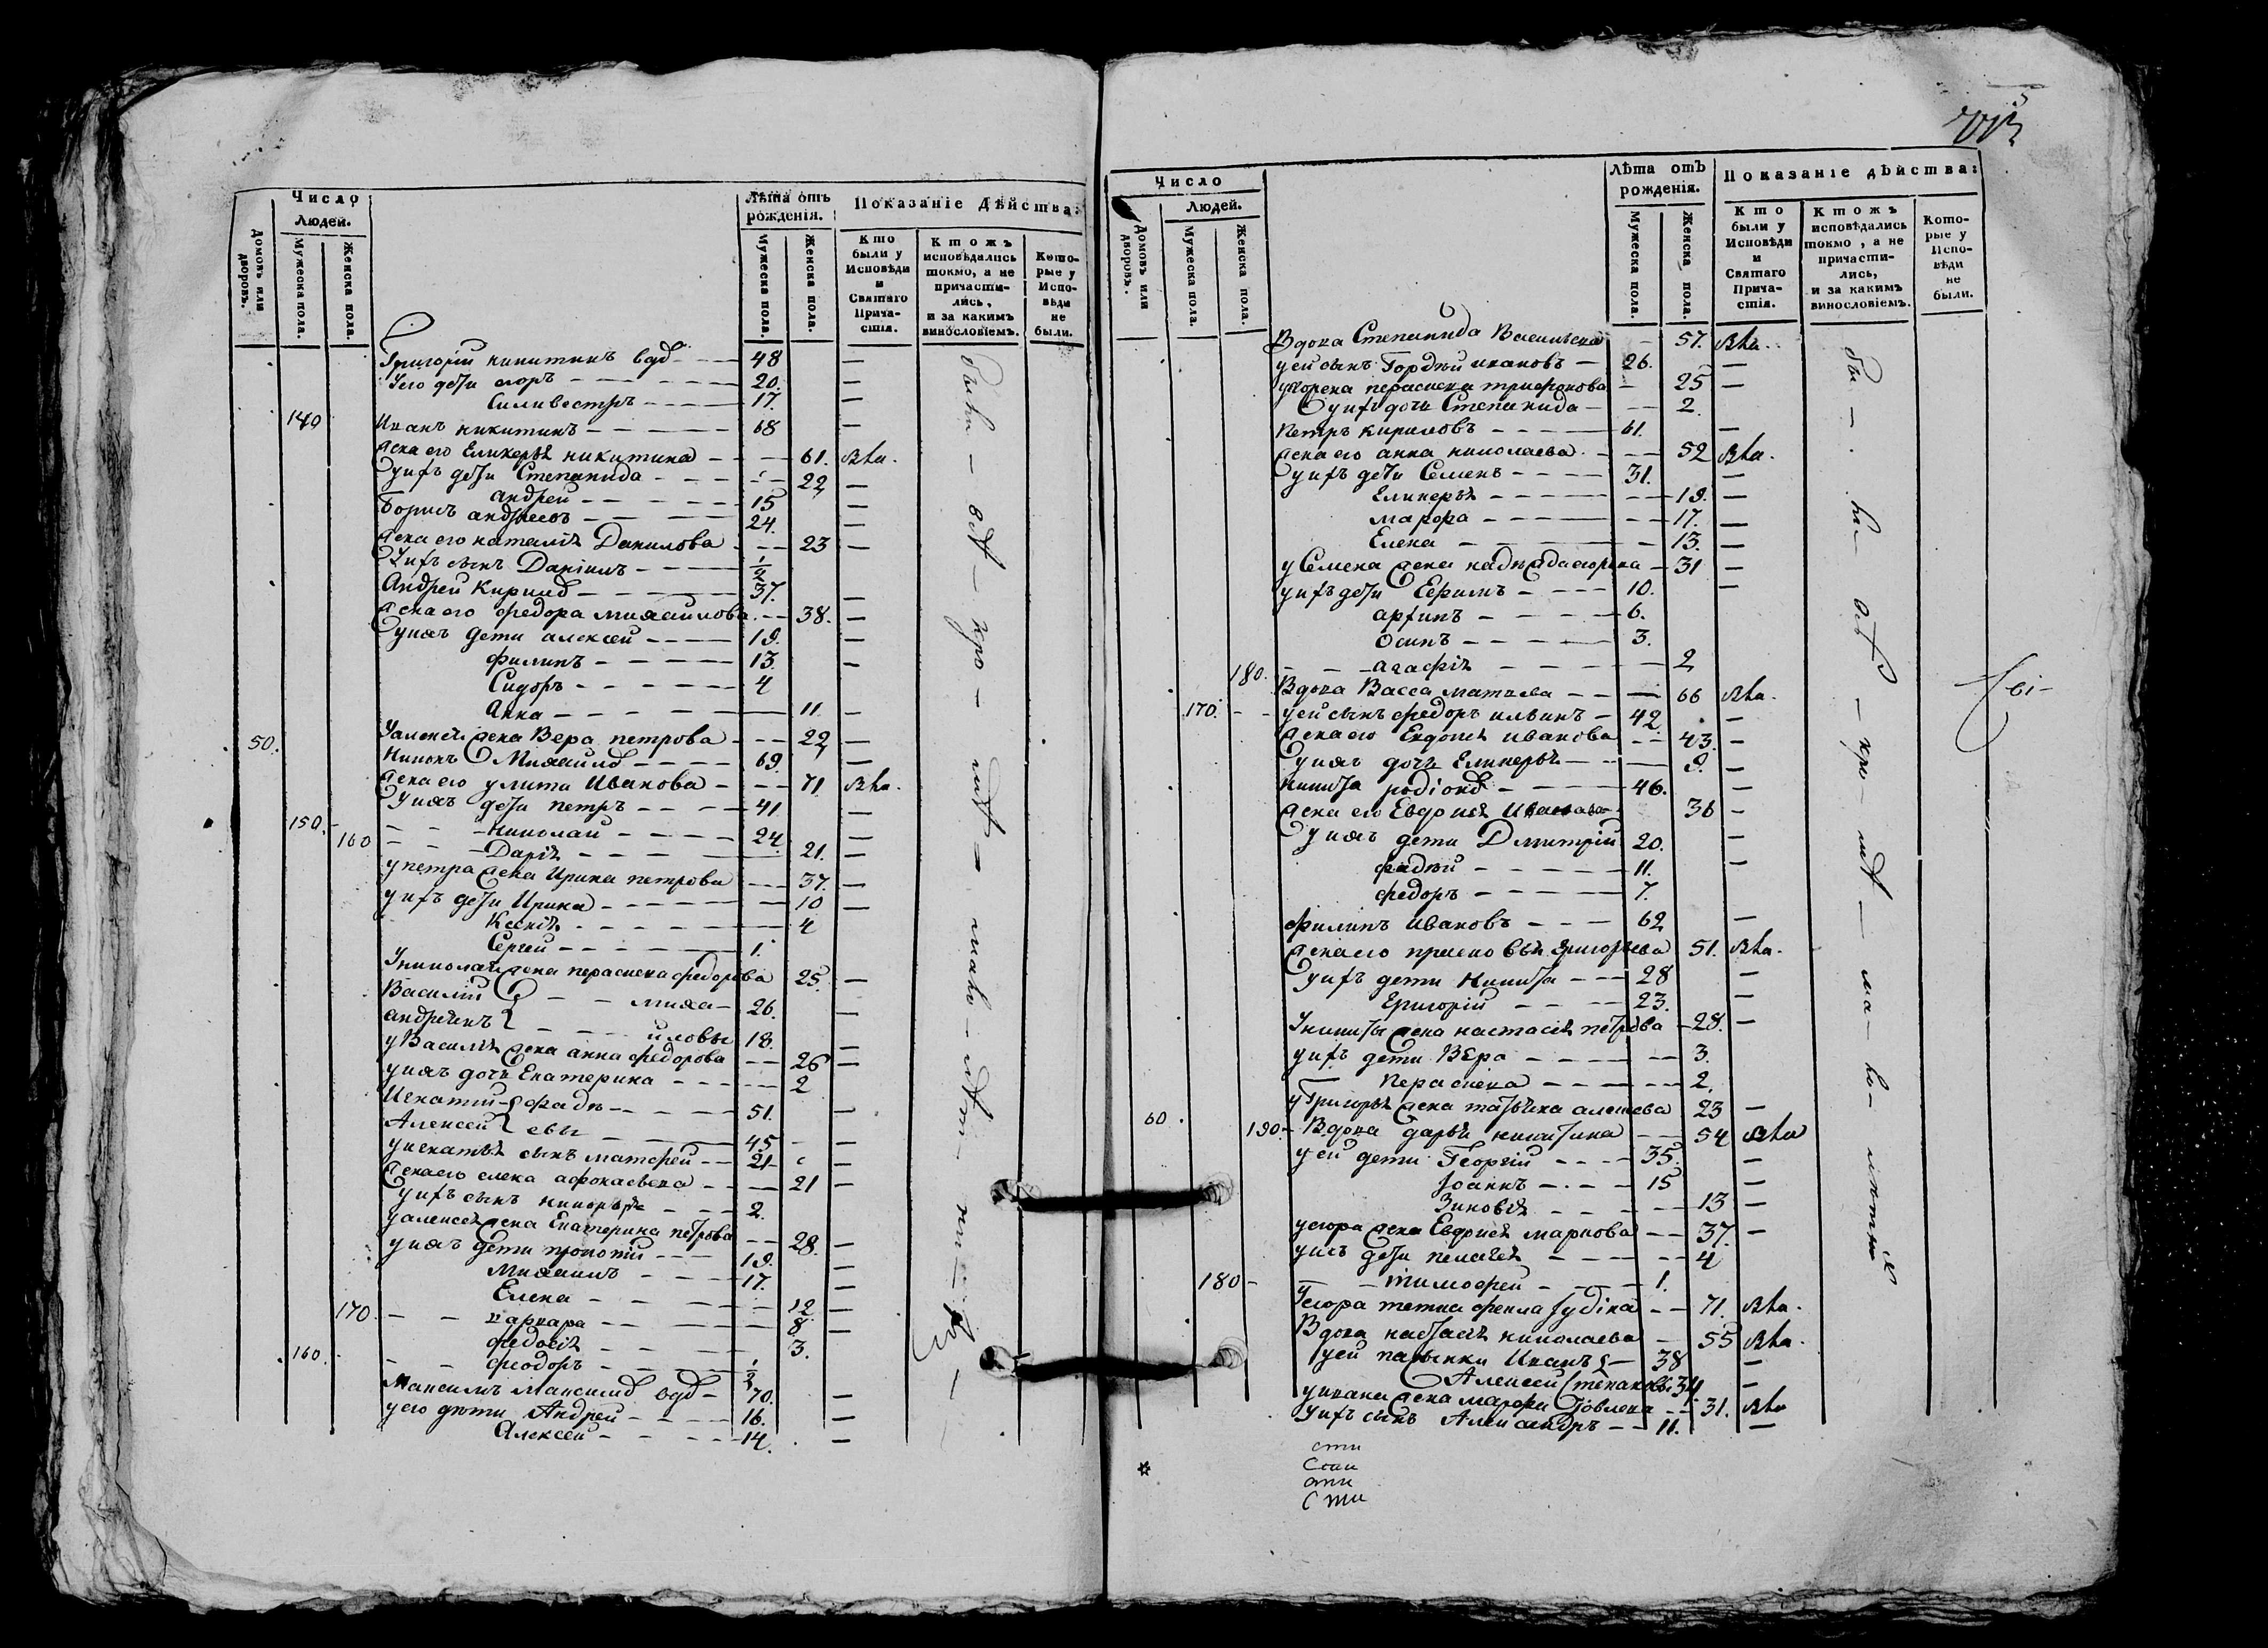 Число
Людей.
Домовъ или дворовъ.
Мужеска пола.
Женска пола.
Лѣта отъ рожденія.
Мужеска пола.
Женска пола.
Показаніе дѣйства:
Кто были у Исповѣди и Святаго Причастія.
Ктожъ исповѣдались токмо, а не причастились, и за какимъ винословіемъ.
Которые у Исповѣди не были.
Григорій никитинъ вдв 48
Уего дети егоръ 20.
Силивестръ 17.
140 Иванъ никитинъ 68
жена его Гликерья никитина 61.
Унихъ дети Степанида 22
андрей 15
Борисъ андреевъ 24.
жена его наталія Данилова 23
Унихъ сынъ Даніилъ 1/2
Андрей Кирил 37.
жена его федора михайлова 38.
Унихъ дети алексей 19.
филипъ 13
Сидоръ 4
Анна 11
Уалексея жена Вера петрова 22
50. Никонъ Михайл 69.
жена его улита Иванова 71
Унихъ дети петръ 41
150. николай 24
160 Дарія 21.
у петра жена Ирина петрова 37.
унихъ дети Ирина 10
Ксенія 4
Сергей 1.
Униколая жена парасцева федорова 25.
Василій миха- 26.
андреянъ йловы 18.
у Василія жена анна федорова 26
унихъ дочь Екатерина 2
Игнатій фадѣ- 51.
Алексей евы 45
уигнатія сынъ матфей 21
жена его елена афонасьева 21
унихъ сынъ никифоръ 2.
уалексея жена Екатерина петрова 28.
унихъ дети прокопій 19.
Михаилъ 17.
Елена 12
170 варвара 8
федосія 3.
160. феодоръ 1/2
Максимъ Максимов вдв 70.
у его дѣти Андрей 16.
Алексей 14.
Число
Людей.
Домовъ или дворовъ.
Мужеска пола.
Женска пола.
Лѣта отъ рожденія.
Мужеска пола.
Женска пола.
Показаніе дѣйства:
Кто были у Исповѣди и Святаго Причастія.
Ктожъ исповѣдались токмо, а не причастились, и за какимъ винословіемъ.
Которые у Исповѣди не были.
Вдова Степанида Васильева 57.
уей сынъ Гордѣй ивановъ 26.
парасцева трифонова 25
Унихъ дочь Степанида 2.
Петръ кириловъ 61.
жена его анна николаева 52
Унихъ дети Семенъ 31.
Гликерья 19.
марфа 17.
Елена 13.
у Семена жена надежда егорова 31
унихъ дети Ефимъ 10.
архипъ 6.
осипъ 3.
180. агафія 2
Вдова Васса матвеева 66
170. уей сынъ федоръ ильинъ 42
жена его Евдокія иванова 43.
Унихъ дочь Гликерья 9.
Никита родіонов 46.
жена его Евдокія Иванова 36
Унихъ дети Дмитрій 20.
фадѣй 11.
федоръ 7.
филипъ ивановъ 62
жена его прасковья григорьева 51.
Унихъ дети Никита 28
Григорій 23.
Уникиты жена настасія петрова 28.
унихъ дети Вера 3.
Парасцева 2.
уГригорья жена татьяна алексеева 23
60. 190. Вдова дарья никитина 54
уей дети Георгій 35.
Іоаннъ 15
Зиновія 13
уегора жена Евдокія маркова 37.
унихъ дети пелагея 4
180 тимофей 1.
Уегора тетка фекла 71.
Вдова настасія николаева 55
уей пасынки Иванъ 38
Алексей Степановы 34
уивана жена марфа Павлова 31.
Унихъ сынъ Александръ 11.
сти
сти